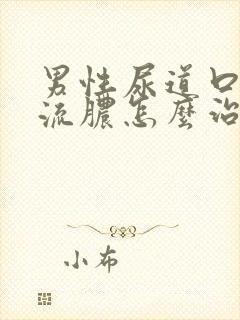 男性尿道口
流膿怎麼治
小布